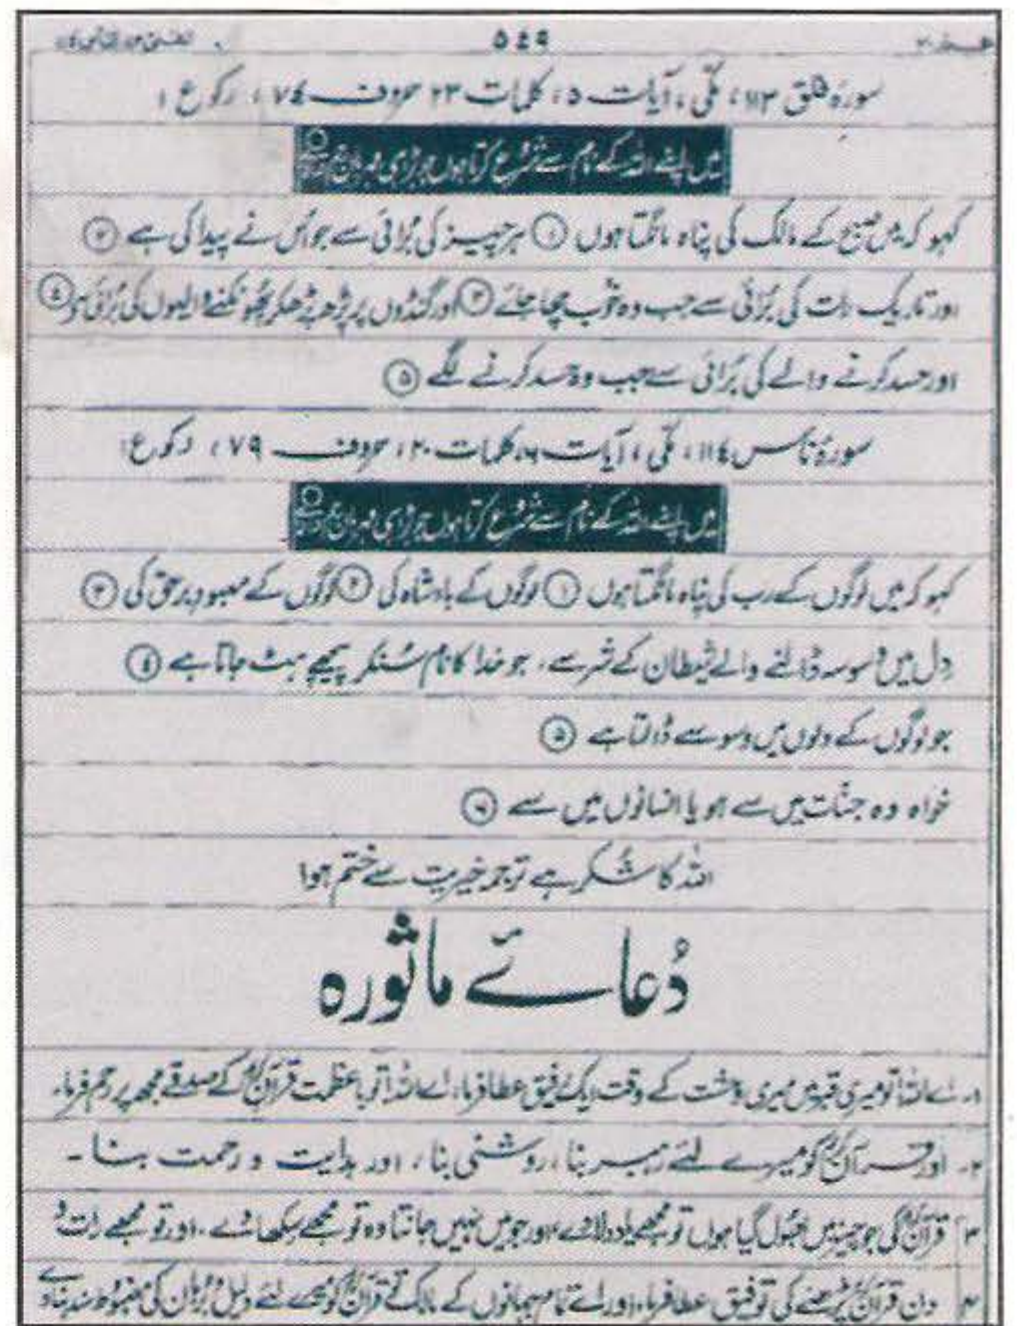 ۵۴۹
سورۂ فلق ۱۱۳، مکّی، آیات ۵، کلمات ۲۳ حروف ۷۴، رکوع ۱
میں اپنے اللہ کے نام سے شروع کرتا ہوں جو بڑا ہی مہربان
کہو کہ میں صبح کے مالک کی پناہ مانگتا ہوں ۱ ہر چیز کی بُرائی سے جو اُس نے پیدا کی ہے ۲
اور تاریک رات کی بُرائی سے جب وہ خوب چھا جائے ۳ اور گنڈوں پر پڑھ پڑھ کر پھونکنے والیوں کی بُرائی سے ۴
اور حسد کرنے والے کی بُرائی سے جب وہ حسد کرنے لگے ۵
سورۂ ناس ۱۱۴، مکّی، آیات ۶، کلمات ۲۰، حروف ۷۹، رکوع ۱
میں اپنے اللہ کے نام سے شروع کرتا ہوں جو بڑا ہی مہربان
کہو کہ میں لوگوں کے رب کی پناہ مانگتا ہوں ۱ لوگوں کے بادشاہ کی ۲ لوگوں کے معبود برحق کی ۳
دِل میں وسوسہ ڈالنے والے شیطان کے شر سے، جو خدا کا نام سُنکر پیچھے ہٹ جاتا ہے ۴
جو لوگوں کے دلوں میں وسوسے ڈالتا ہے ۵
خواہ وہ جنّات میں سے ہو یا انسانوں میں سے ۶
اللہ کا شکر ہے ترجمہ خیریت سے ختم ہوا
دُعائے ماثورہ
۱۔ اے اللہ تو میری قبر میں میری وحشت کے وقت ایک رفیق عطا فرما، اے اللہ تو با عظمت قرآن کے صدقے مجھ پر رحم فرما،
۲۔ اور قرآن کو میرے لئے رہبر بنا، روشنی بنا، اور ہدایت و رحمت بنا۔
۳ قرآن کی جو چیز میں بھول گیا ہوں تو مجھے یاد دلا دے، اور جو میں نہیں جانتا وہ تو مجھے سکھا دے۔ اور تو مجھے رات و
۴ دن قرآن پڑھنے کی توفیق عطا فرما، اور اے تمام جہانوں کے مالک تو قرآن کو میرے لئے دلیل و برہان کی مضبوط سند بنا دے